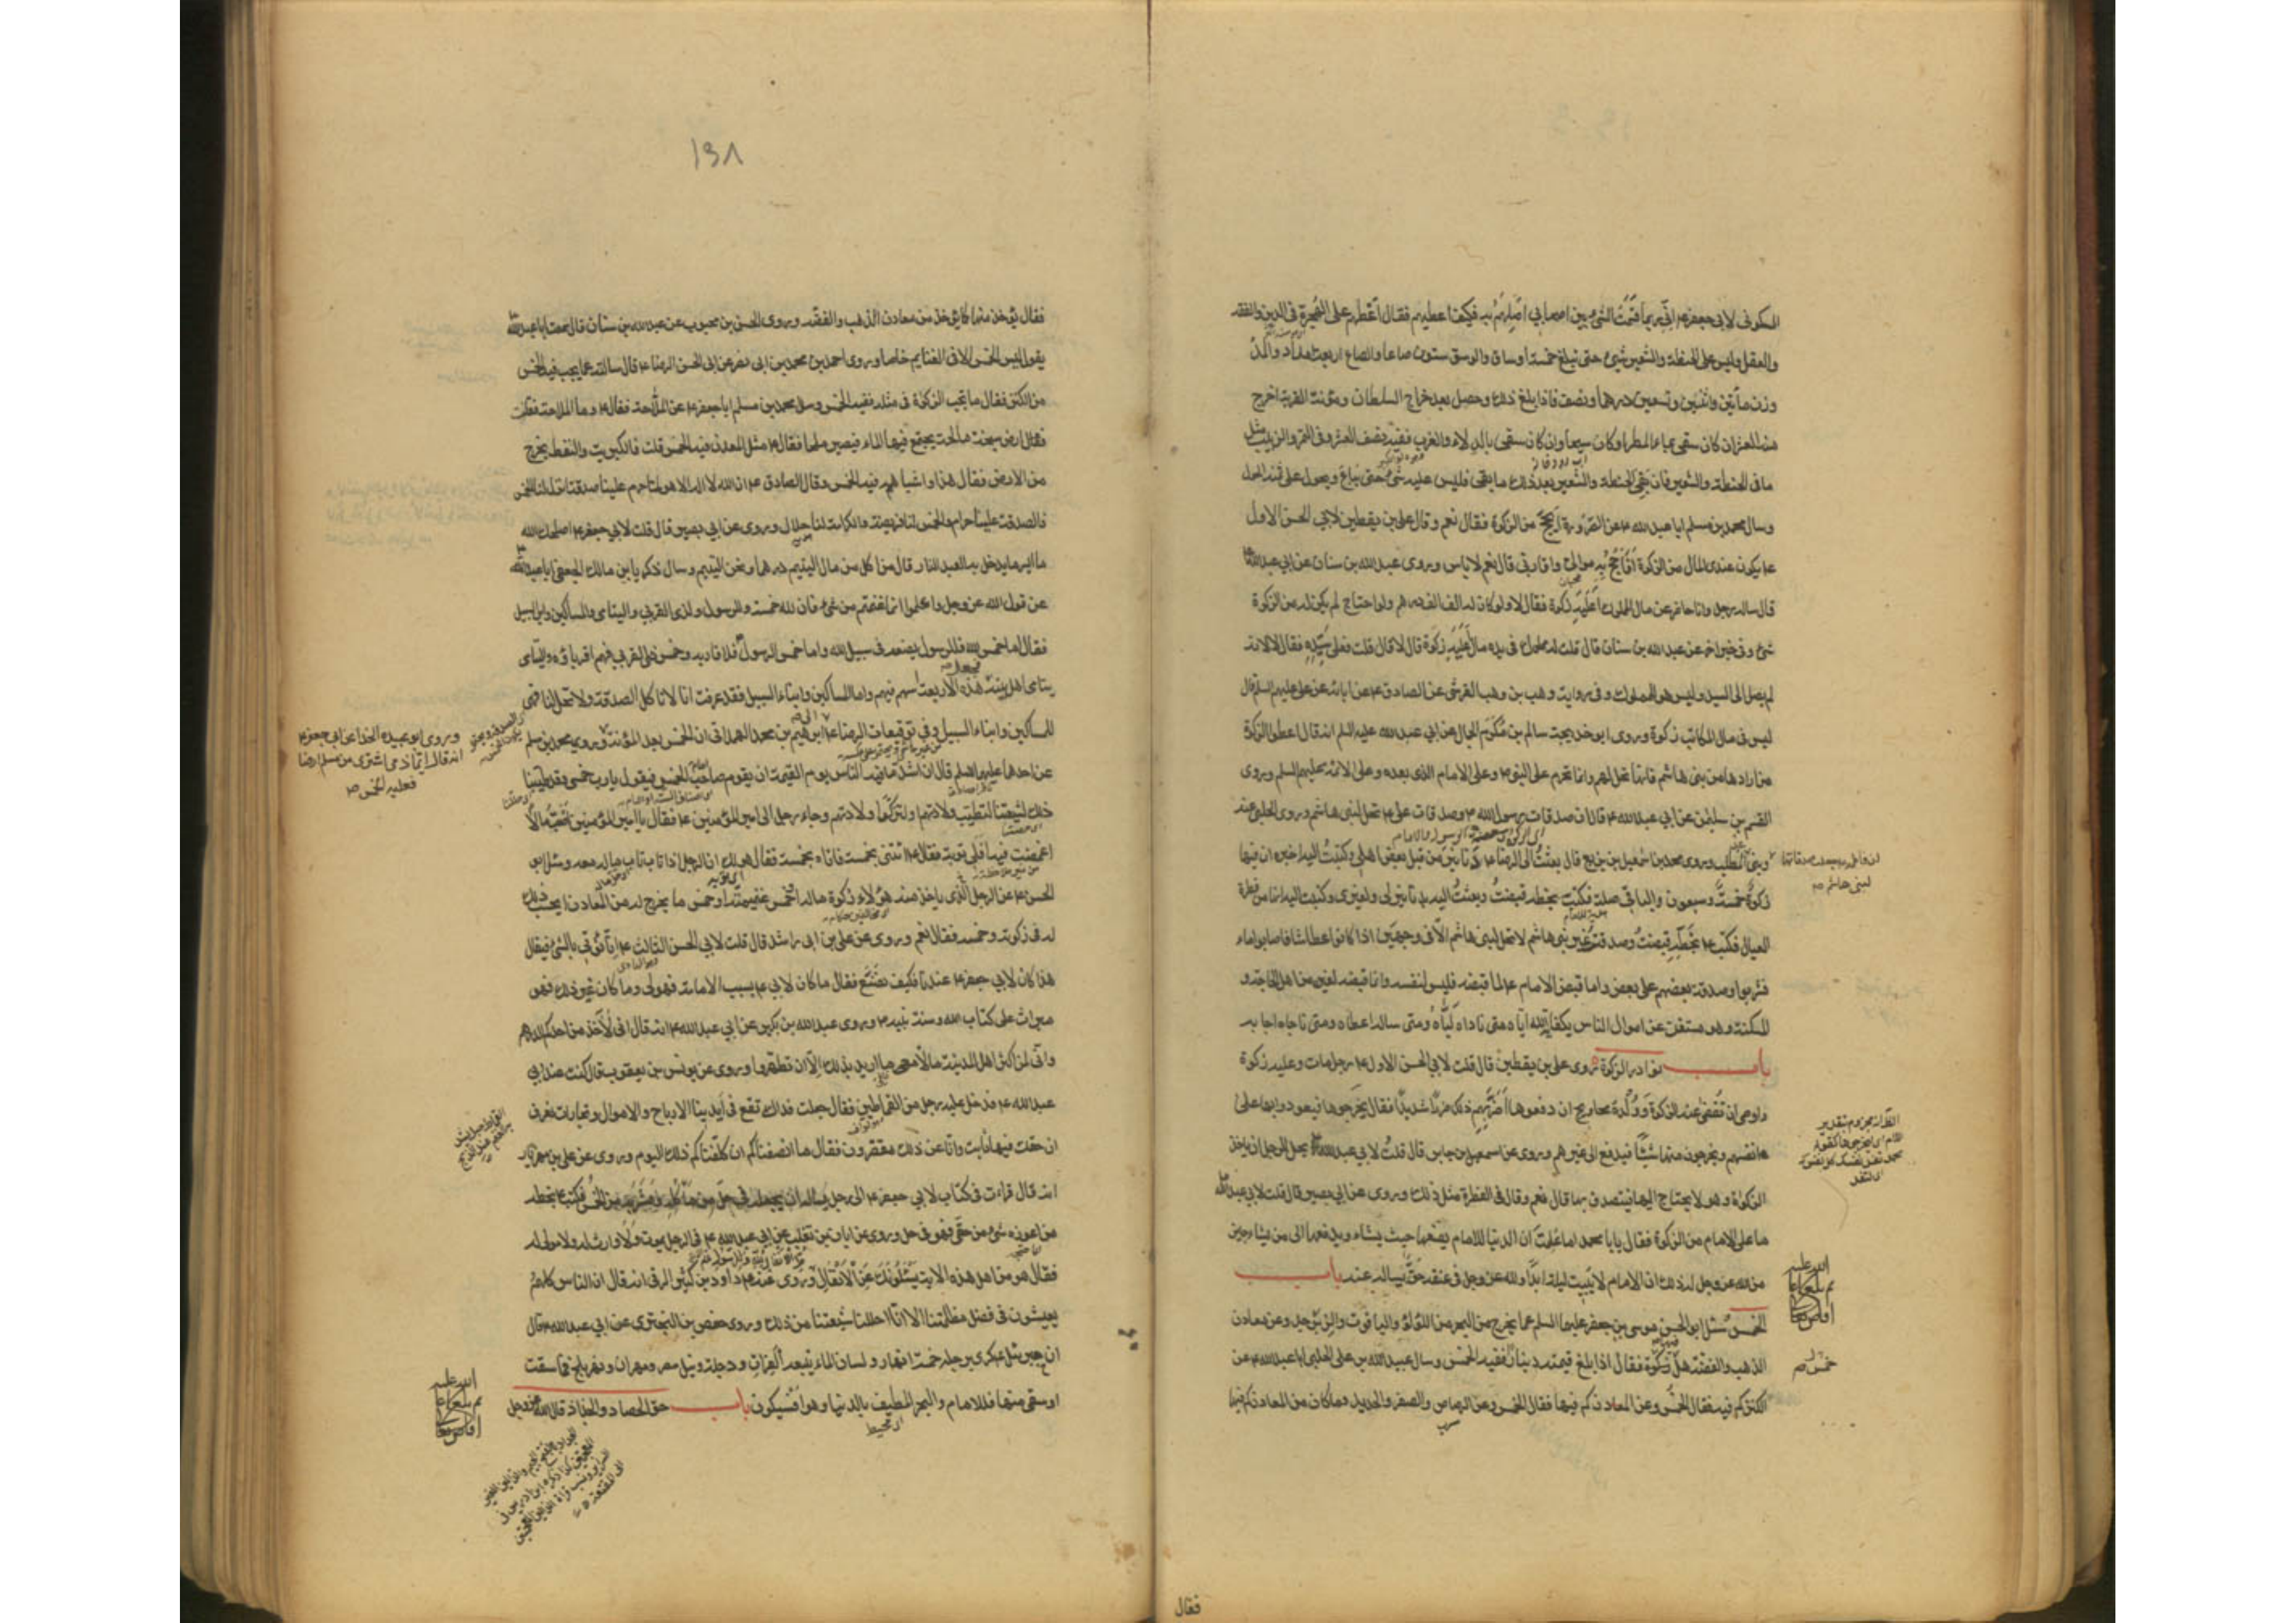 السكونى لابى جعفر ع انى ربما قسمت الشئ بين اصحابي اصلهم به فكيف اعطيهم فقال اعطهم على الهجرة فى الدين والفقه
والعقل وليس على الحنطة والشعير شئ حتى تبلغ خمسة اوساق والوسق ستون صاعا والصاع اربعة امداد والمد
وزن مأتين واثنين وتسعين درهما ونصف فاذا بلغ ذلك وحصل بعد خراج السلطان ومؤنة القرية اخرج
منه العشر ان كان سقى بماء المطر او كان سيحا وان كان سقى بالدلاء والغرب ففيه نصف العشر وفى التمر والزبيب مثل
ما فى الحنطة والشعير فان بقى الحنطة والشعير بعد ذلك ما بقى فليس عليه شئ حتى يباع ويحول على ثمنه الحول
وسال محمد بن مسلم ابا عبد الله ع عن الصرورة ايحج من الزكوة فقال نعم وقال على بن يقطين لابي الحسن الاول
ع يكون عندى المال من الزكوة أفأحج به موالى واقاربى قال نعم لا باس وروى عبد الله بن سنان عن ابي عبد الله ع
قال ساله رجل وانا حاضر عن مال المملوك اعليه زكوة فقال لا ولو كان له الف الف درهم ولو احتاج لم يكن له من الزكوة
شئ وفى خبر اخر عن عبد الله بن سنان قال قلت له مملوك فى يده مال أعليه زكوة قال لا قال قلت فعلى سيده فقال لا لانه
لم يصل الى السيد وليس هو للمملوك وفى رواية وهب بن وهب القرشى عن الصادق ع عن ابائه عن على عليهم السلم قال
ليس فى مال المكاتب زكوة وروى ابو خديجة سالم بن مكرم الجمال عن ابي عبد الله عليه السلم انه قال اعطوا الزكوة
من ارادها من بنى هاشم فانها تحل لهم وانما تحرم على النبى ص وعلى الامام الذى بعده وعلى الائمة عليهم السلم وروى
القسم بن سليمن عن ابي عبد الله ع قال ان صدقات رسول الله ص وصدقات على ع تحل لبنى هاشم وروى الحلبى عنه
وبنى المطلب وروى محمد بن اسمعيل بن بزيع قال بعثت الى الرضا ع بدنانير من قبل بعض اهلى وكتبت اليه اخبره ان فيها
زكوة خمسة وسبعون والباقى صلة فكتب بخطه قبضت وبعثت اليه بدنانير لى ولغيرى وكتبت اليه انها من فطرة
العيال فكتب ع بخطه قبضت وصدقة غير بنى هاشم لا تحل لبنى هاشم الا فى وجهين اذا كانوا عطاشا فاصابوا ماء
فشربوا وصدقة بعضهم على بعض واما قبض الامام ع لما قبضه فليس لنفسه وانما قبضه لغيره من اهل الحاجة و
المسكنة وهو مستغن عن اموال الناس بكفاية الله اياه متى ناداه لباه ومتى ساله اعطاه ومتى ناجاه اجابه
باب نوادر الزكوة روى على بن يقطين قال قلت لابي الحسن الاول ع رجل مات وعليه زكوة
واوصى ان تقضى عنه الزكوة وولده محاويج ان دفعوها اضر بهم ذلك ضررا شديدا فقال يخرجوها فيعودوا بها على
انفسهم ويخرجون منها شيئا فيدفع الى غيرهم وروى عن اسمعيل بن جابر قال قلت لابي عبد الله ع يحل للرجل ان ياخذ
الزكوة وهو لا يحتاج اليها فيتصدق بها قال نعم وقال فى الفطرة مثل ذلك وروى عن ابي بصير قال قلت لابي عبد الله ع
ما على الامام من الزكوة فقال يابا محمد اما علمت ان الدنيا للامام يضعها حيث يشاء ويدفعها الى من يشاء جائز
من الله عز وجل له ذلك ان الامام لا يبيت ليلة ابدا ولله عز وجل فى عنقه حق يساله عنه باب
الخمس سئل ابو الحسن موسى بن جعفر عليهما السلم عما يخرج من البحر من اللؤلؤ والياقوت والزبرجد وعن معادن
الذهب والفضة هل زكوة فقال اذا بلغ قيمته دينارا ففيه الخمس وسال عبيد الله بن على الحلبى ابا عبد الله ع عن
الكنز كم فيه فقال الخمس وعن المعادن كم فيها فقال الخمس وعن الرصاص والصفر والحديد وما كان من المعادن كم فيها
لبنى هاشم
خمس
فقال
١٣٨
فقال يؤخذ منها كما يؤخذ من معادن الذهب والفضة وروى الحسن بن محبوب عن عبد الله بن سنان قال سمعت ابا عبد الله ع
يقول ليس الخمس الا فى الغنايم خاصة وروى احمد بن محمد بن ابى نصر عن ابى الحسن الرضا ع قال سالته عما يجب فيه الخمس
من الكنز فقال ما تجب الزكوة فى مثله ففيه الخمس وسال محمد بن مسلم ابا جعفر ع عن الملاحة فقال ع وما الملاحة فقلت
فقال ارض سبخة مالحة يجتمع فيها الماء فيصير ملحا فقال ع مثل المعدن فيه الخمس قلت فالكبريت والنفط يخرج
من الارض فقال هذا واشباهه فيه الخمس وقال الصادق ع ان الله لا اله الا هو لما حرم علينا الصدقة انزل لنا الخمس
فالصدقة علينا حرام والخمس لنا فريضة والكرامة لنا حلال وروى عن ابي بصير قال قلت لابي جعفر ع اصلحك الله
ما ايسر ما يدخل به العبد النار قال من اكل من مال اليتيم درهما ونحن اليتيم وسال زكريا بن مالك الجعفى ابا عبد الله ع
عن قول الله عز وجل واعلموا انما غنمتم من شئ فان لله خمسه وللرسول ولذى القربى واليتامى والمساكين وابن السبيل
فقال اما خمس الله فللرسول يضعه فى سبيل الله واما خمس الرسول فلاقاربه وخمس ذوى القربى فهم اقرباؤه واليتامى
يتامى اهل بيته فجعل هذه الاربعة اسهم فيهم واما المساكين وابناء السبيل فقد عرفت انا لا ناكل الصدقة ولا تحل لنا فهى
للمساكين وابناء السبيل وفى توقيعات الرضا ع الى ابرهيم بن محمد الهمدانى ان الخمس بعد المؤنة وروى محمد بن مسلم
عن احدهما عليهما السلم قال ان اشد ما فيه الناس يوم القيمة ان يقوم صاحب الخمس فيقول يا رب خمسى وقد طيبنا
ذلك لشيعتنا لتطيب ولادتهم ولتزكوا ولادتهم وجاء رجل الى امير المؤمنين ع فقال يا امير المؤمنين اصبت مالا
اغمضت فيه افلى توبة فقال ع ائتنى بخمسه فاتاه بخمسه فقال هو لك ان الرجل اذا تاب تاب ماله معه وسئل ابو
الحسن ع عن الرجل الذى ياخذ منه هؤلاء زكوة ماله او خمس غنيمته او خمس ما يخرج له من المعادن ايحسب ذلك
له فى زكوته وخمسه فقال نعم وروى عن على بن ابى راشد قال قلت لابي الحسن الثالث ع انا نؤتى بالشئ فيقال
هذا كان لابي جعفر ع عندنا فكيف نصنع فقال ما كان لابي ع بسبب الامامة فهو لى وما كان غير ذلك فهو
ميراث على كتاب الله وسنة نبيه ص وروى عبد الله بن بكير عن ابي عبد الله ع انه قال انى لآخذ من احدكم الدرهم
وانى لمن اكثر اهل المدينة مالا ما اريد بذلك الا ان تطهروا وروى عن يونس بن يعقوب قال كنت عند ابي
عبد الله ع فدخل عليه رجل من القماطين فقال جعلت فداك تقع فى ايدينا الارباح والاموال وتجارات نعرف
ان حقك فيها ثابت وانا عن ذلك مقصرون فقال ما انصفناكم ان كلفناكم ذلك اليوم وروى عن على بن مهزيار
انه قال قرات فى كتاب لابي جعفر ع الى رجل يساله ان يجعله فى حل من ماكله ومشربه من الخمس فكتب ع بخطه
من اعوزه شئ من حقى فهو فى حل وروى عن ابان بن تغلب عن ابي عبد الله ع فى الرجل يموت ولا وارث له ولا مولى له
فقال هو من اهل هذه الاية يسئلونك عن الانفال وروى عنه ع داود بن كثير الرقى انه قال ان الناس كلهم
يعيشون فى فضل مظلمتنا الا انا احللنا شيعتنا من ذلك وروى حفص بن البخترى عن ابي عبد الله ع قال
ان جبرئيل ع كرى برجله خمسة انهار ولسان الماء يتبعه الفرات ودجلة ونيل مصر ومهران ونهر بلخ فما سقت
او سقى منها فللامام والبحر المطيف بالدنيا وهو افسيكون باب حق الحصاد والجذاذ قال الله عز وجل
وروى ابو عبيدة الحذاء عن ابى جعفر ع
انه قال ايما ذمى اشترى من مسلم ارضا
فعليه الخمس